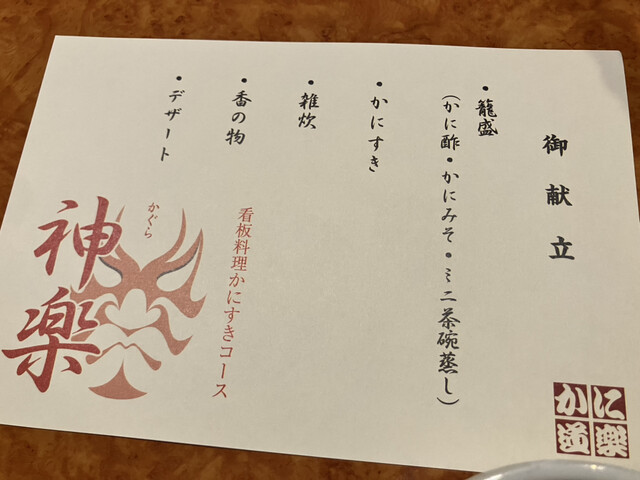 御献立
・籠盛
(かに酢・かにみそ・ミニ茶碗蒸し)
・かにすき
・雑炊
・香の物
・デザート
看板料理かにすきコース
かぐら
神楽
かに道楽